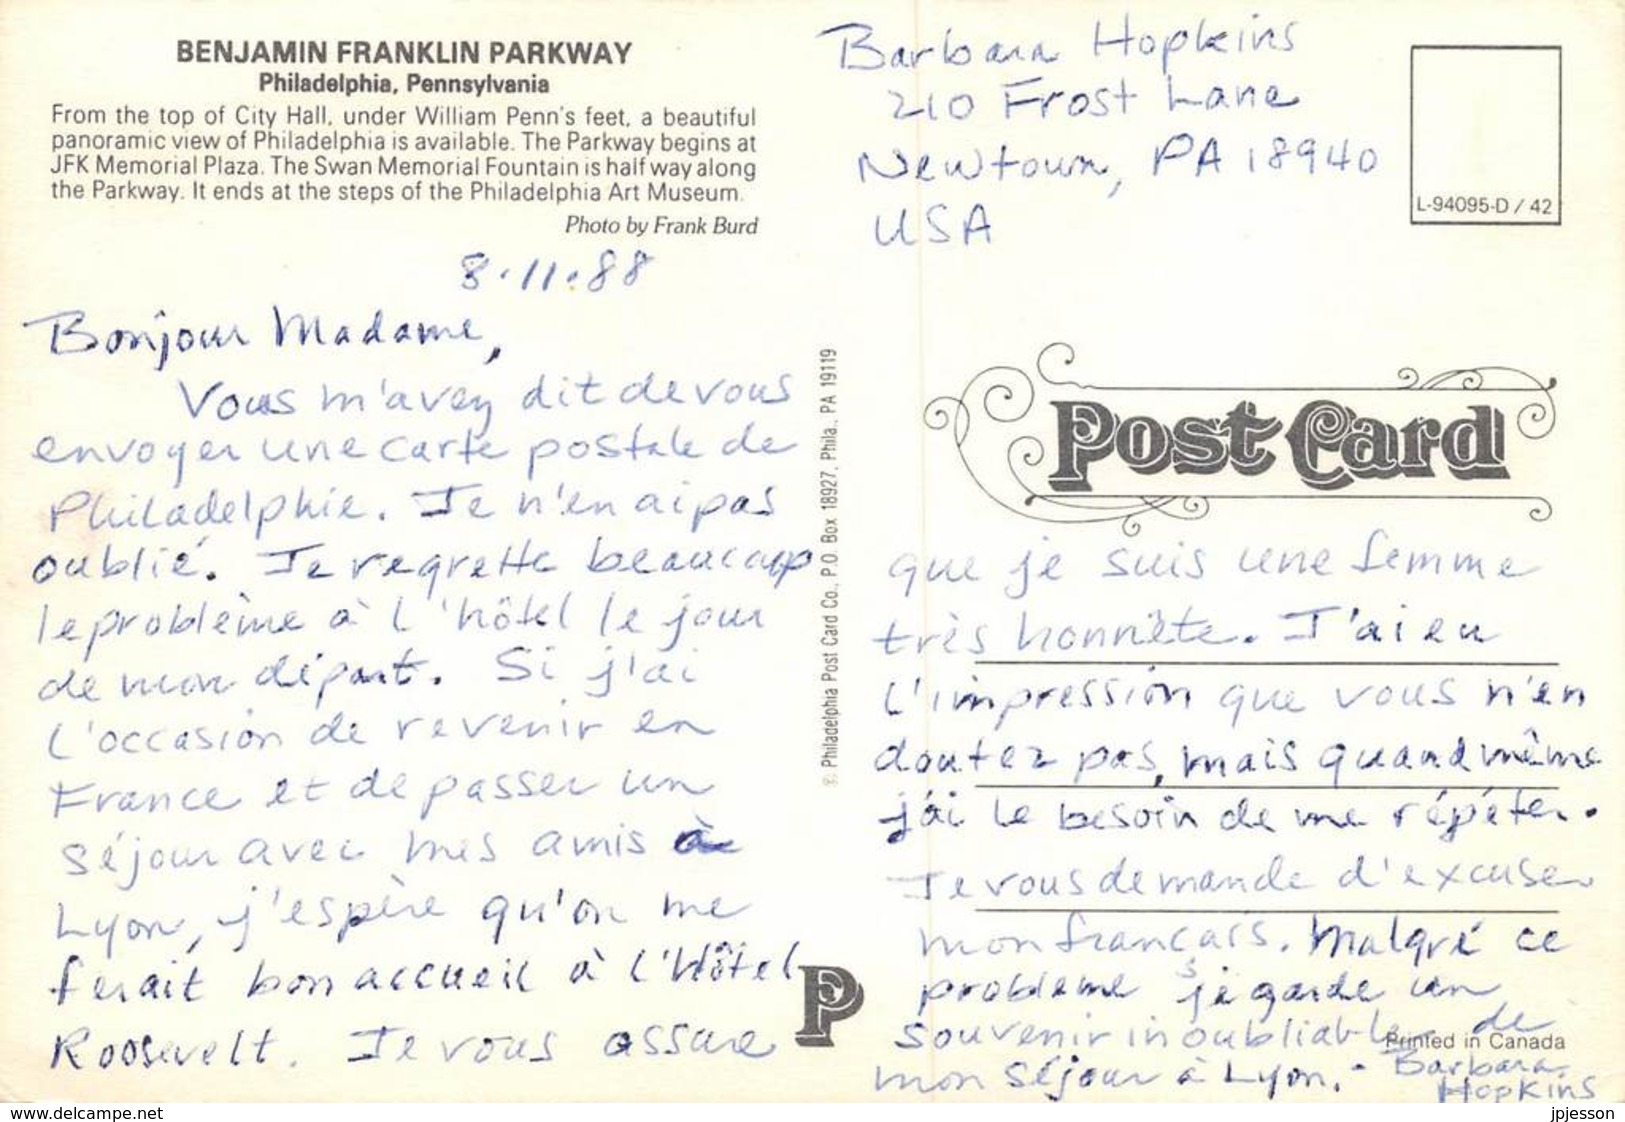 BENJAMIN FRANKLIN PARKWAY
Philadelphia, Pennsylvania
From the top of City Hall, under William Penn's feet, a beautiful
panoramic view of Philadelphia is available. The Parkway begins at
JFK Memorial Plaza. The Swan Memorial Fountain is half way along
the Parkway. It ends at the steps of the Philadelphia Art Museum.
Photo by Frank Burd
8.11.88
Bonjour Madame,
Vous m'avez dit de vous
envoyer une carte postale de
Philadelphie. Je n'en ai pas
oublié. Je regrette beaucoup
le problème à l'hôtel le jour
de mon départ. Si j'ai
l'occasion de revenir en
France et de passer un
séjour avec mes amis à
Lyon, j'espère qu'on me
ferait bon accueil à l'Hôtel
Roosevelt. Je vous assure
© Philadelphia Post Card Co., P.O. Box 18927, Phila., PA 19119
P
Barbara Hopkins
210 Frost Lane
Newtown, PA 18940
USA
L-94095-D / 42
Post Card
que je suis une femme
très honnête. J'ai eu
l'impression que vous n'en
doutez pas, mais quand même
j'ai le besoin de me répéter.
Je vous demande d'excuser
mon francais. Malgré ce
probleme je garde un
souvenir inoubliable de
mon séjour à Lyon. - Barbara
Hopkins
Printed in Canada
www.delcampe.net
jpjesson